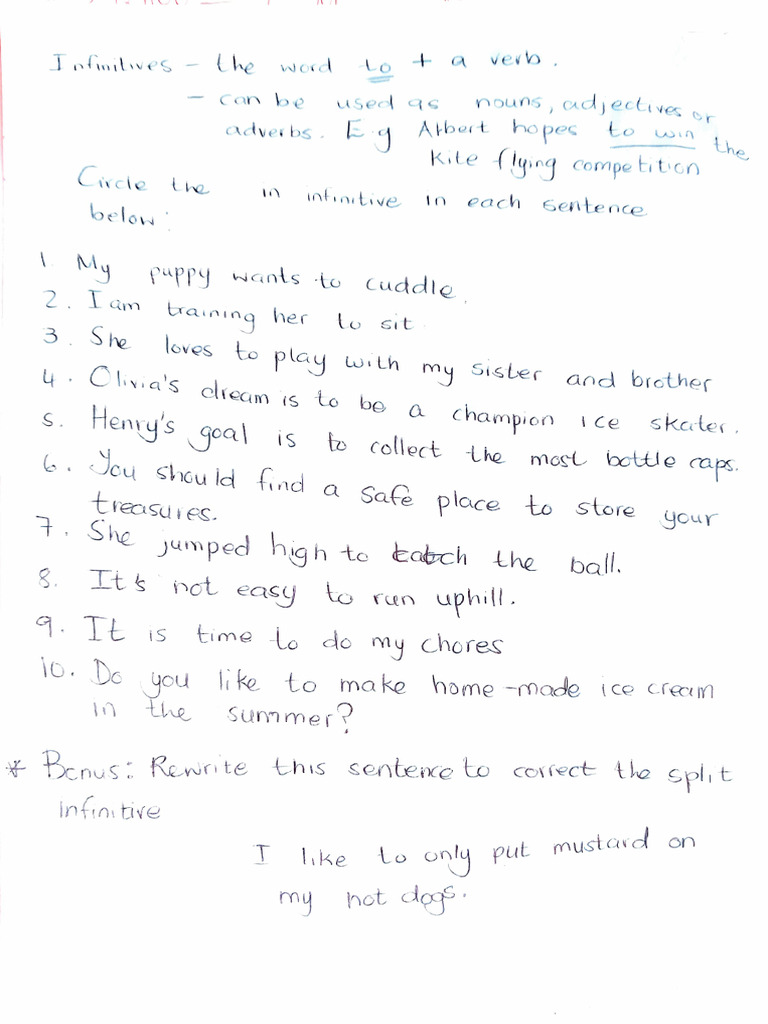 Infinitives - the word to + a verb.
- can be used as nouns, adjectives or
adverbs. E.g Albert hopes to win the
Kite flying competition
Circle the in infinitive in each sentence
below:
1. My puppy wants to cuddle.
2. I am training her to sit
3. She loves to play with my sister and brother
4. Olivia's dream is to be a champion ice skater.
5. Henry's goal is to collect the most bottle caps.
6. You should find a safe place to store your
treasures.
7. She jumped high to catch the ball.
8. It's not easy to run uphill.
9. It is time to do my chores
10. Do you like to make home-made ice cream
in the summer?
* Bonus: Rewrite this sentence to correct the split
infinitive
I like to only put mustard on
my hot dogs.